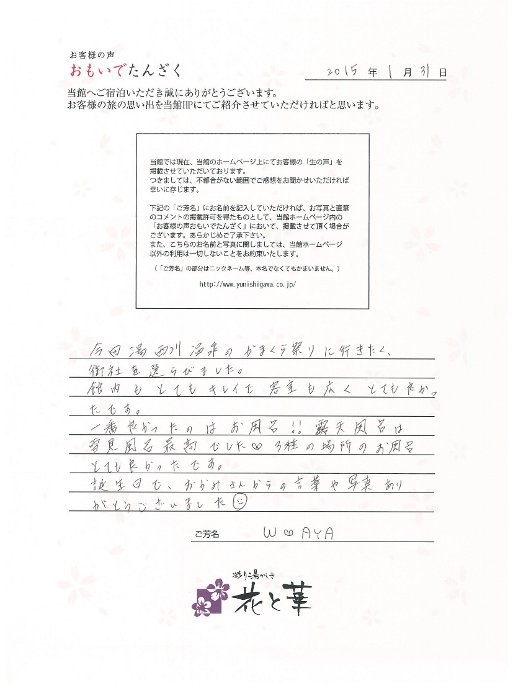 お客様の声
おもいでたんざく
2015 年 1 月 31 日
当館へご宿泊いただき誠にありがとうございます。
お客様の旅の思い出を当館HPにてご紹介させていただければと思います。
当館では現在、当館のホームページ上にてお客様の「生の声」を
掲載させていただいております。
つきましては、不都合がない範囲でご感想をお聞かせいただければ
幸いに存じます。
下記の「ご芳名」にお名前を記入していただければ、お写真と直筆
のコメントの掲載許可を得たものとして、当館ホームページ内の
「お客様の声おもいでたんざく」において、掲載させて頂く場合が
ございます。あらかじめご了承下さい。
また、こちらのお名前と写真に関しましては、当館ホームページ
以外の利用は一切しないことをお約束いたします。
(「ご芳名」の部分はニックネーム等、本名でなくてもかまいません。)
http://www.yunishigawa.co.jp/
今回湯西川温泉のかまくら祭りに行きたく、
御社を選らびました。
館内もとてもキレイで客室も広くとても良かっ
たです。
一番良かったのはお風呂!! 露天風呂は
雪見風呂最高でした♡ 3種の場所のお風呂
とても良かったです。
誕生日で、おかみさんからの言葉や写真あり
がとうございました☺
ご芳名 W♡AYA
花と華